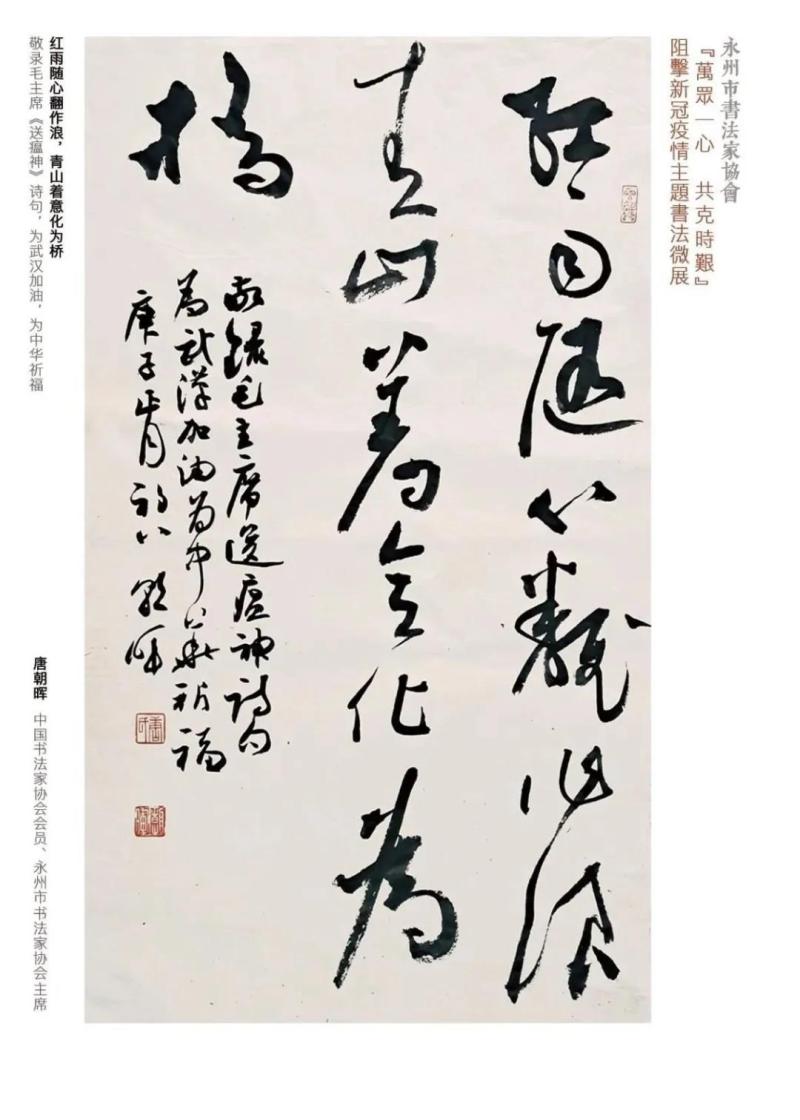 永州市書法家協會
『萬眾一心 共克時艱』
阻擊新冠疫情主題書法微展
红雨随心翻作浪
青山着意化为
桥
敬録毛主席送瘟神詩句
为武漢加油为中华祈福
庚子正月初八朝晖
红雨随心翻作浪，青山着意化为桥
敬录毛主席《送瘟神》诗句，为武汉加油，为中华祈福
唐朝晖 中国书法家协会会员、永州市书法家协会主席